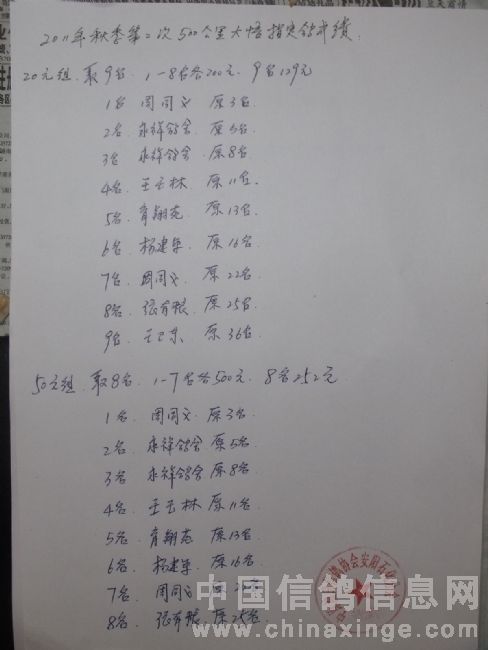 2011年秋季第二次500公里大悟指定鸽成绩
20元组.取9名. 1-8名各200元. 9名129元
1名 周同义 原3名.
2名. 永祥鸽舍 原5名.
3名 永祥鸽舍. 原8名.
4名 王玉林 原11名.
5名. 育翔苑. 原13名.
6名 杨建华. 原16名.
7名 周同义 原22名.
8名. 张有根. 原25名.
9名 王卫东. 原36名.
50元组.取8名. 1-7名各500元. 8名252元
1名 周同义 原3名.
2名 永祥鸽舍 原5名.
3名 永祥鸽舍 原8名.
4名 王玉林 原11名.
5名. 育翔苑 原13名.
6名. 杨建华 原16名.
7名 周同义 原
8名. 张有根. 原25名.
中国信鸽信息网
www.chinaxinge.com